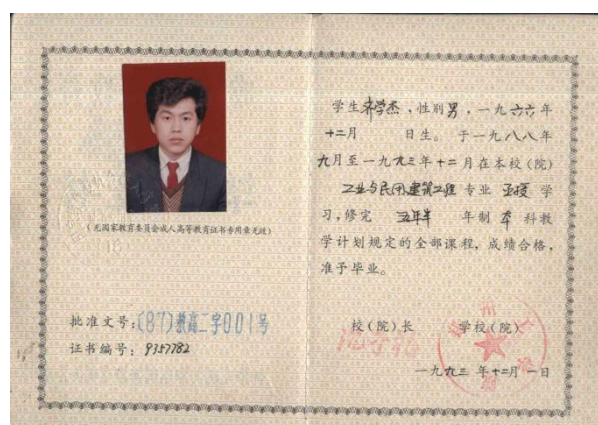 (无国家教育委员会成人高等教育证书专用章无效)
批准文号：(87)教高二字001号
证书编号：9357782
学生齐学杰，性别男，一九六六年
十二月 日生。于一九八八年
九月至一九九三年十二月在本校(院)
工业与民用建筑工程 专业 函授 学
习，修完 五年半 年制 本 科教
学计划规定的全部课程，成绩合格，
准予毕业。
校(院)长 学校(院)
一九九三年十二月一日